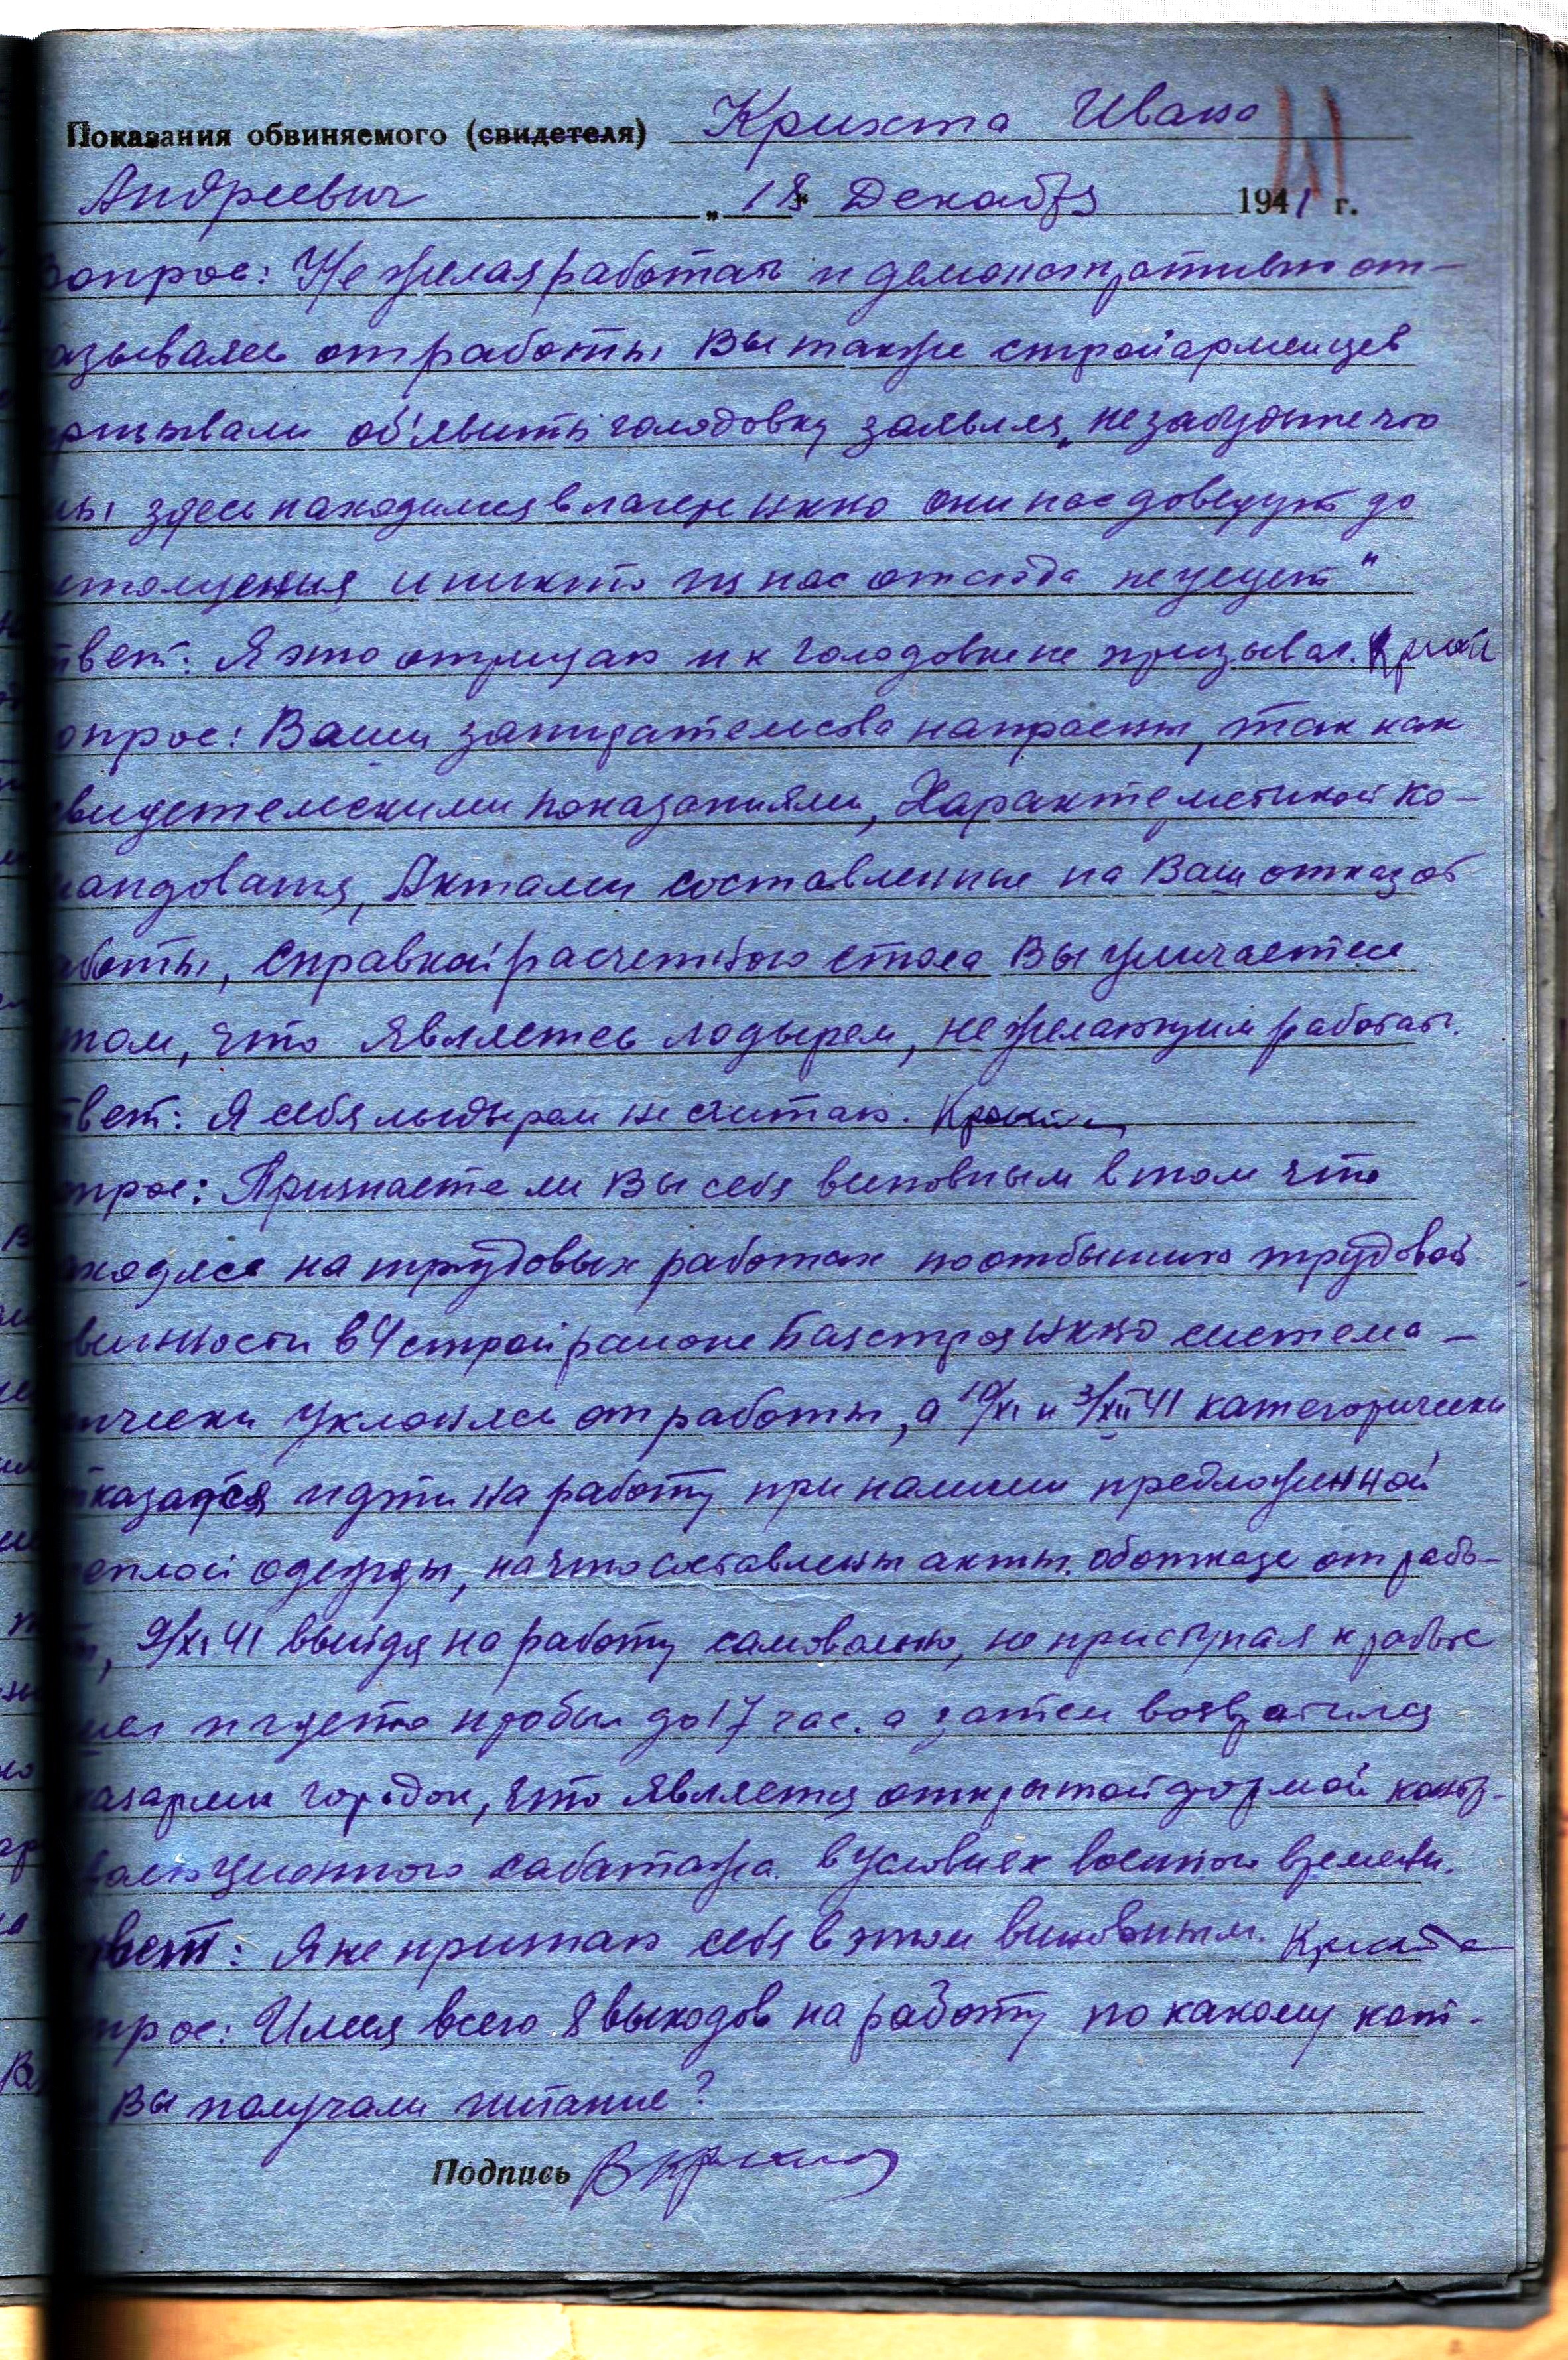 Показания обвиняемого (свидетеля) Крихта Ивана
Андреевич „18" Декабря 1941 г.
Вопрос: Не желая работать и демонстративно от-
азываясь от работы Вы также стройармейцев
призывали об'явить голодовку заявляя „не забудьте что
мы здесь находимся в лагере нквд они нас доведут до
истощения и никто из нас отсюда не уедет"
твет: Я это отрицаю и к голодовке не призывал.
опрос: Ваши запирательства напрасны, так как
свидетельскими показаниями, Характеристикой ко-
мандования, Актами составленные на Ваш отказ от
аботы, справкой расчетного стола Вы уличаетесь
том, что являетесь лодырем, не желающим работать.
твет: Я себя лодырем не считаю. Крихта
опрос: Признаете ли Вы себя виновным в том что
находясь на трудовых работах по отбытию трудовой
винности в 4 стройрайоне Базстроя нквд система-
ически уклонялся от работы, а 19/XI и 3/XII 41 категорически
тказался идти на работу при наличии предложенной
еплой одежды, на что составлены акты об отказе от рабо-
ты, 9/XI 41 выйдя на работу самовольно, не приступая к работе
шел и где то пробыл до 17 час. а затем возвратился
казармен городок, что является открытой формой контр-
волюционного саботажа в условиях военного времени.
твет: Я не признаю себя в этом виновным. Крихта
прос: Имея всего 8 выходов на работу по какому кот-
Вы получали питание?
Подпись